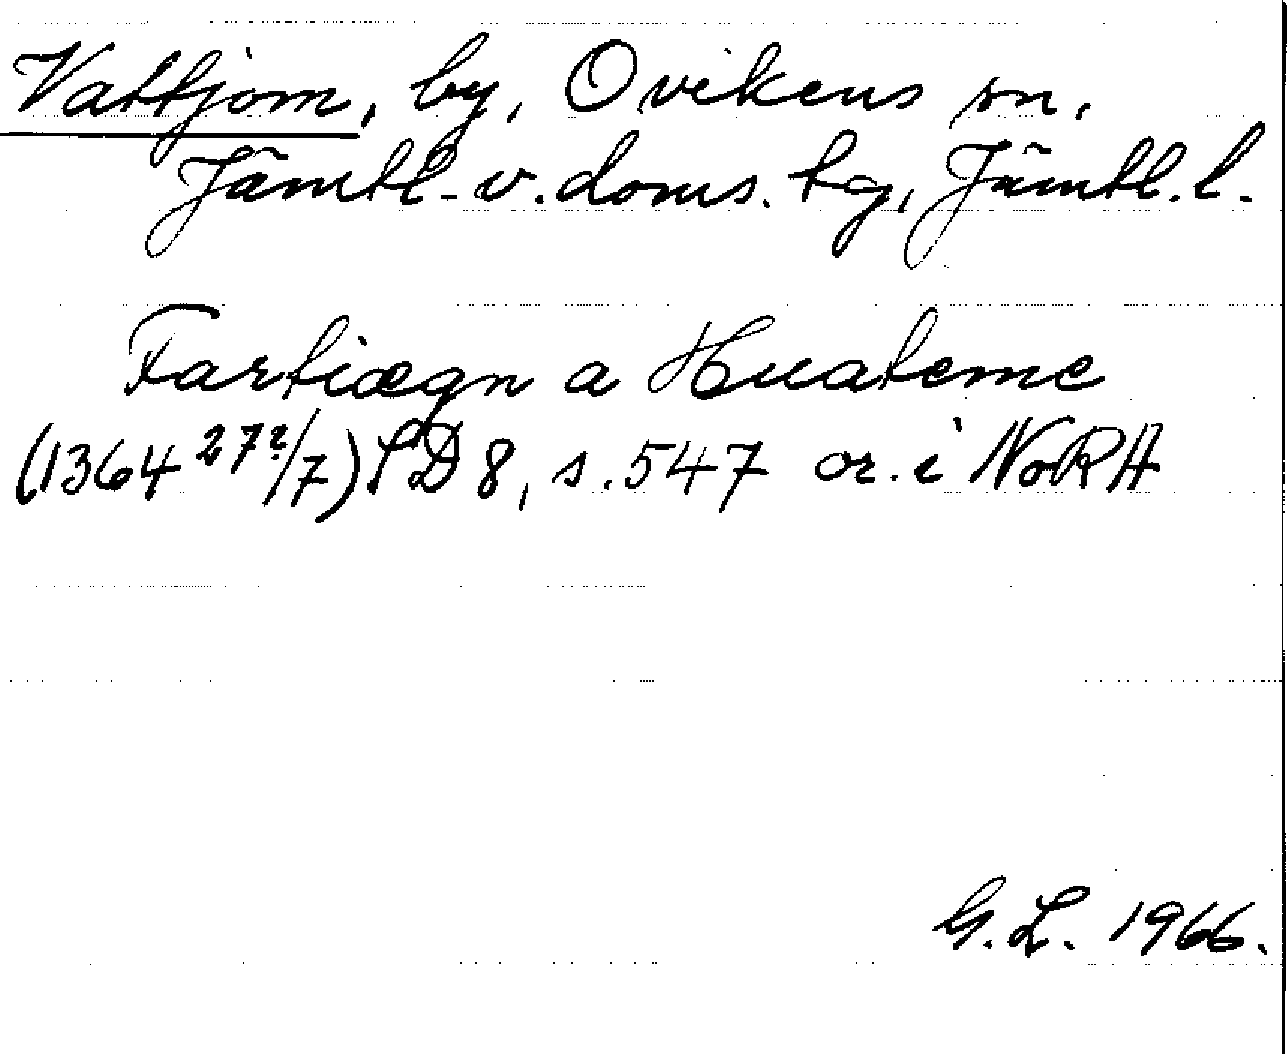 Vattjom, by, Ovikens sn,
Jämtl. v. doms. tg, Jämtl. l.
Fartiægn a Huateme
(1364 27?/7) SD 8, s. 547 or. i NoRA
G. L. 1966.